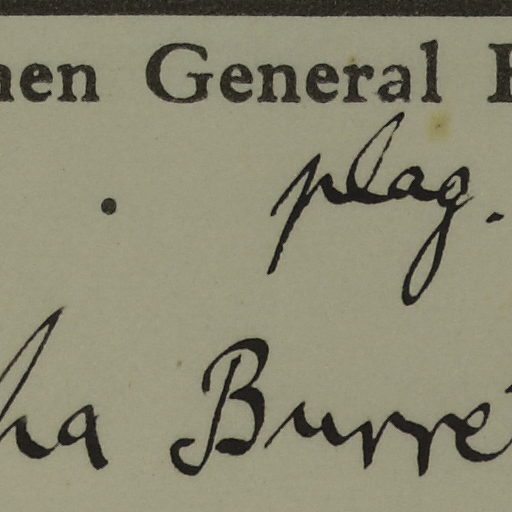 nen General H
. plag.
ha Burret